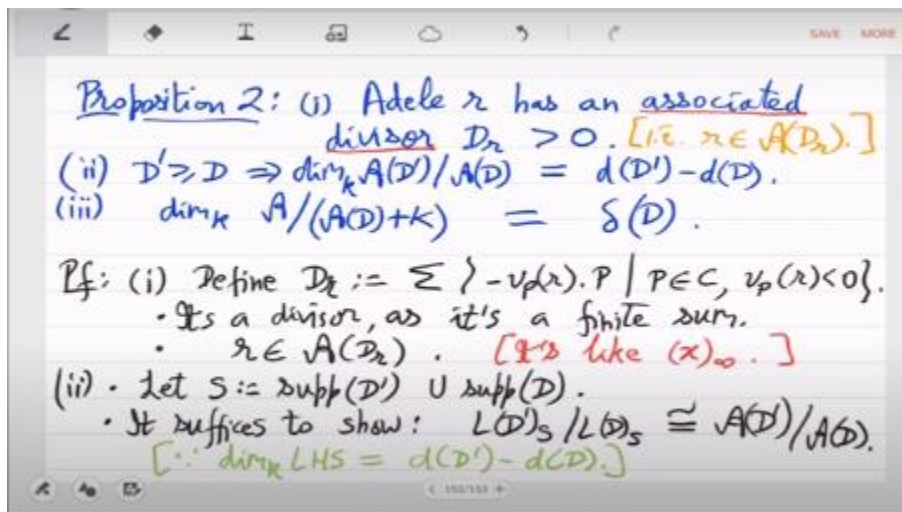 SAVE MORE
Proposition 2: (i) Adele r has an associated
divisor D_r > 0. [i.e. r ∈ A(D_r).]
(ii) D' ≥ D ⇒ dim_k A(D')/A(D) = d(D') - d(D).
(iii) dim_k A/(A(D)+K) = δ(D).
Pf: (i) Define D_r := Σ { -v_p(r).P | P ∈ C, v_p(r) < 0}.
• Its a divisor, as it's a finite sum.
• r ∈ A(D_r). [It's like (x)_∞.]
(ii) • Let S := supp(D') ∪ supp(D).
• It suffices to show: L(D')_S / L(D)_S ≅ A(D')/A(D).
[∵ dim_k LHS = d(D') - d(D).]